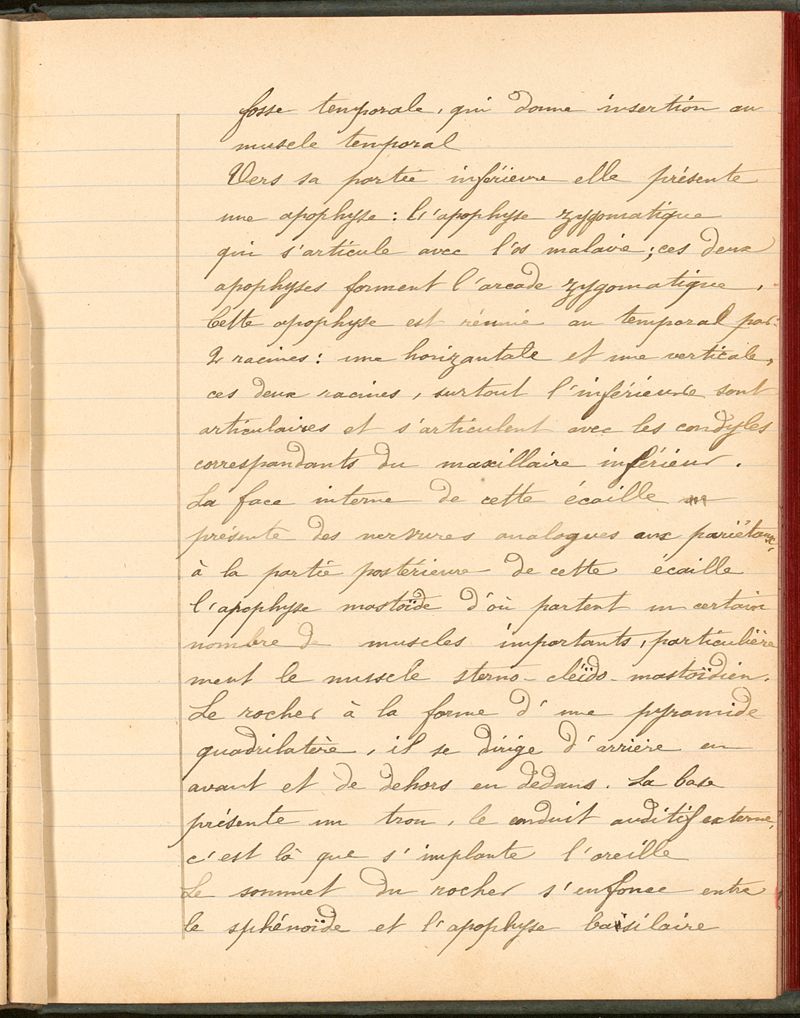 fosse temporale, qui donne insertion au
muscle temporal
Vers sa partie inférieure elle présente
une apophyse : l'apophyse zygomatique
qui s'articule avec l'os malaire ; ces deux
apophyses forment l'arcade zygomatique,
Cette apophyse est réunie au temporal par
2 racines : une horizontale et une verticale,
ces deux racines, surtout l'inférieure sont
articulaires et s'articulent avec les condyles
correspondants du maxillaire inférieur.
La face interne de cette écaille
présente des nervures analogues aux pariétaux,
à la partie postérieure de cette écaille
l'apophyse mastoïde d'où partent un certain
nombre d muscles importants, particulière
ment le muscle sterno-cléïdo-mastoïdien.
Le rocher à la forme d'une pyramide
quadrilatère, il se dirige d'arrière en
avant et de dehors en dedans. La base
présente un trou, le conduit auditif externe,
c'est là que s'implante l'oreille
Le sommet du rocher s'enfonce entre
le sphénoïde et l'apophyse basilaire